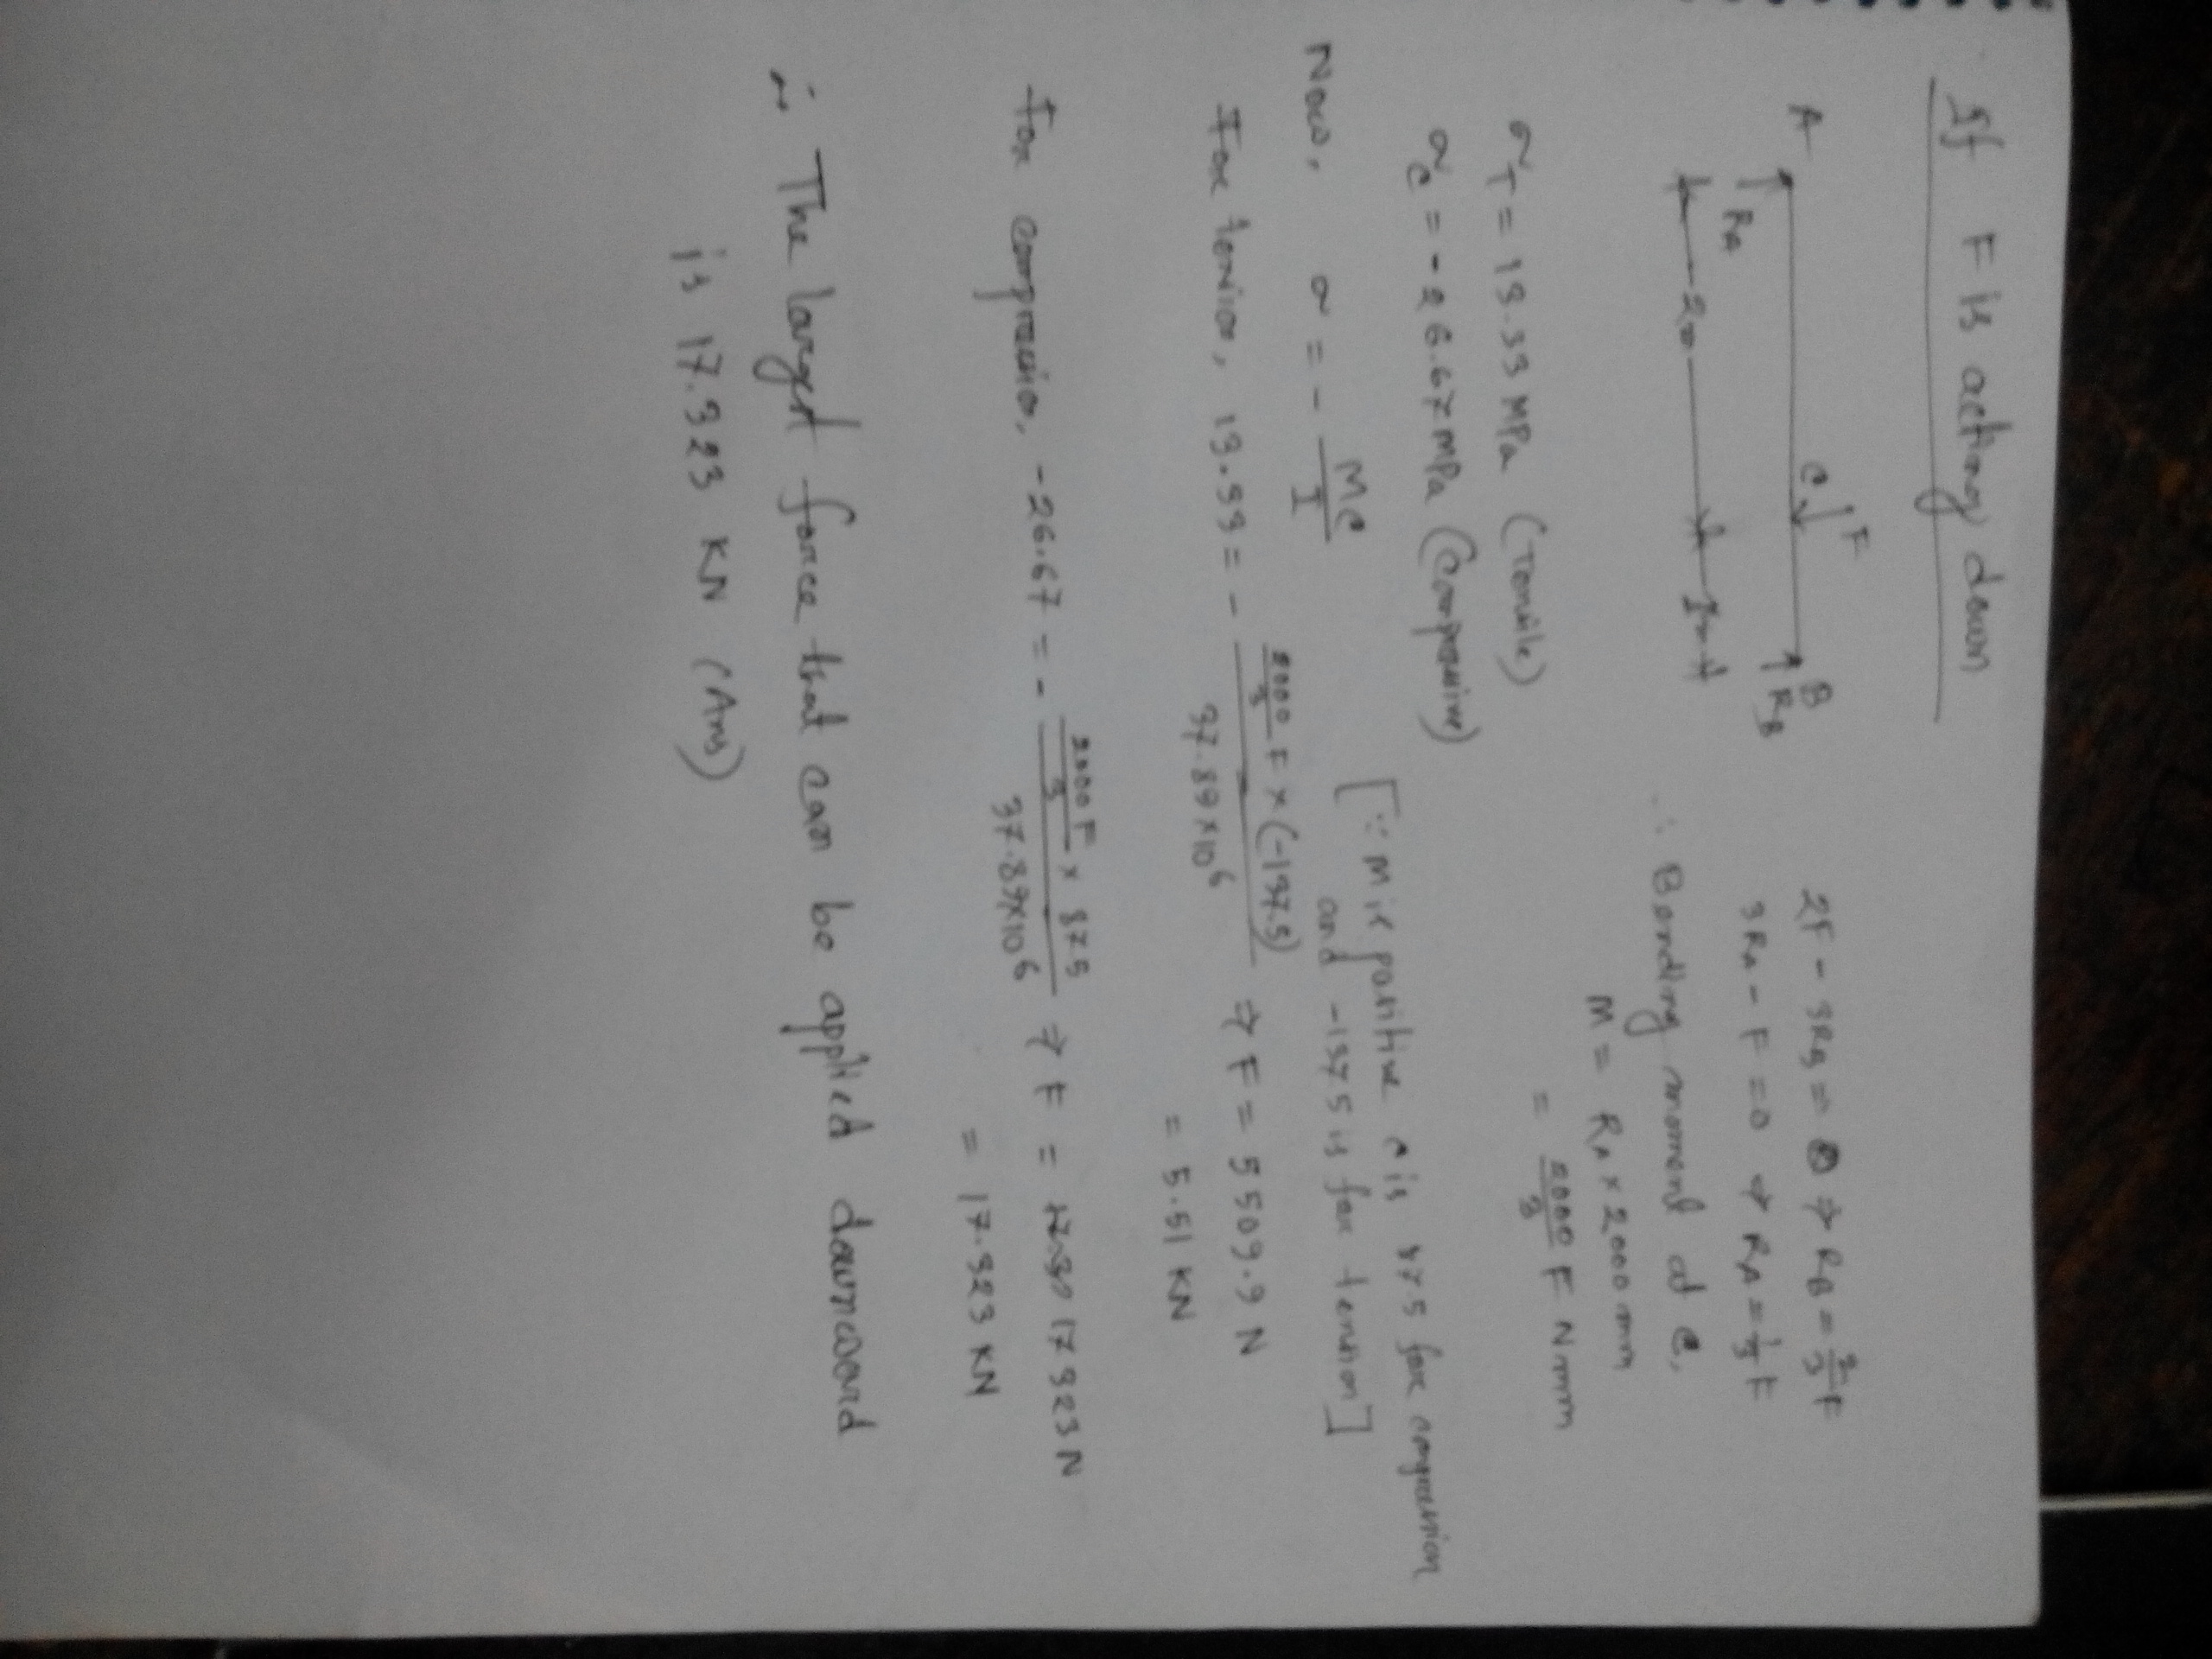 If F is acting down
A C F B
RA RB
2m 1m
2F - 3RB = 0 ⇒ RB = 2/3 F
3RA - F = 0 ⇒ RA = 1/3 F
∴ Bending moment at C,
M = RA × 2000 mm
= 2000/3 F N mm
σT = 13.33 MPa (Tensile)
σC = -26.67 MPa (Compressive)
[∵ M is positive c is 87.5 for compression
and -137.5 is for tension]
Now, σ = - Mc/I
For tension, 13.33 = - 2000/3 F × (-137.5) / 37.89×10⁶ ⇒ F = 5509.9 N
= 5.51 KN
For compression, -26.67 = - 2000F/3 × 87.5 / 37.89×10⁶ ⇒ F = 17323 N
= 17.323 KN
∴ The largest force that can be applied downward
is 17.323 KN (Ans)